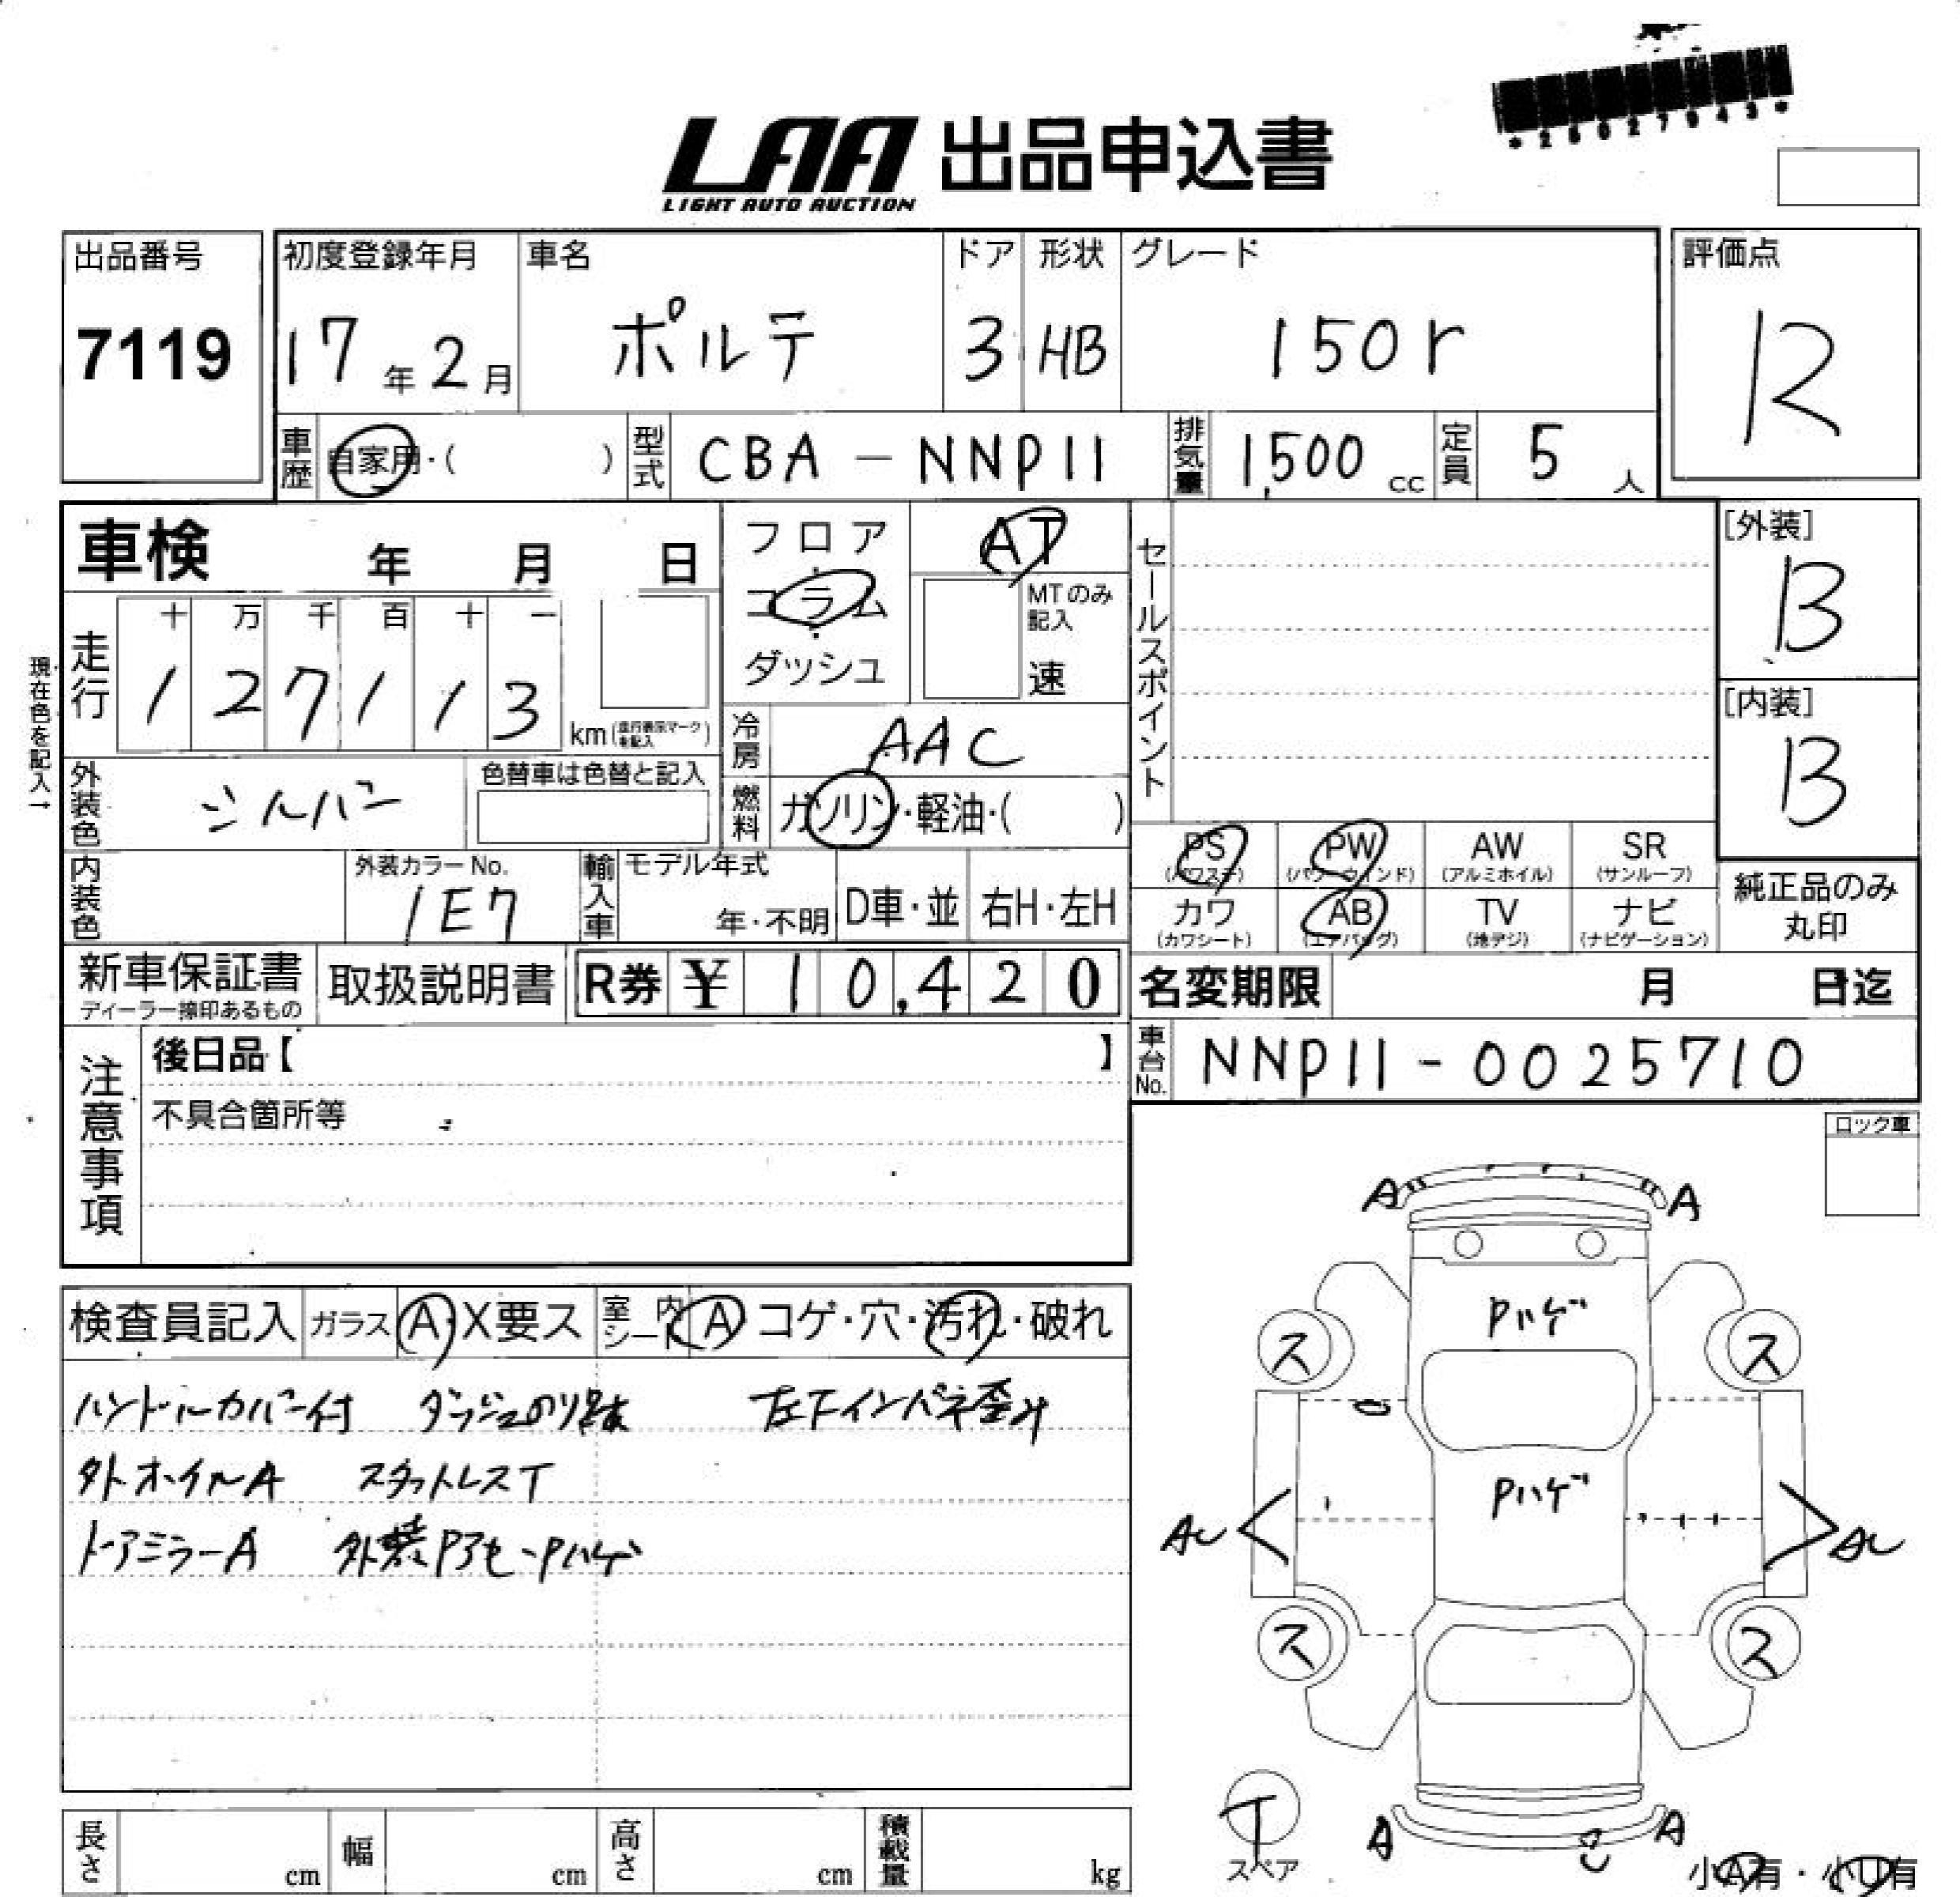 LAA 出品申込書
LIGHT AUTO AUCTION
出品番号
7119
初度登録年月
17年2月
車名
ポルテ
ドア
3
形状
HB
グレード
150r
評価点
R
車歴 自家用・( )
型式 CBA-NNP11
排気量 1,500 cc
定員 5 人
車検 年 月 日
走行
十 万 千 百 十 一
1 2 7 1 1 3
km
現在色を記入→
フロア
・
コラム
・
ダッシュ
AT
MTのみ
記入
速
冷房 AAC
燃料 ガソリン・軽油・( )
セールスポイント
[外装]
B
[内装]
B
外装色 シルバー
色替車は色替と記入
内装色
外装カラーNo.
1E7
輸入車
モデル年式
年・不明
D車・並
右H・左H
PS PW AW SR
(パワステ) (パワーウインド) (アルミホイル) (サンルーフ)
カワ AB TV ナビ
(カワシート) (エアバッグ) (地デジ) (ナビゲーション)
純正品のみ
丸印
新車保証書
ディーラー捺印あるもの
取扱説明書
R券 ¥ 10,420
名変期限 月 日迄
車台No. NNP11-0025710
注意事項
後日品【 】
不具合箇所等
ロック車
検査員記入 ガラス A・X要ス 室内シート A コゲ・穴・汚れ・破れ
ハンドルカバー付 ダッシュのり跡 左Fインパネ歪み
外ホイルA スタットレスT
ドアミラーA 外装Pアセ・Pハゲ
A A
Pハゲ
ス ス
Pハゲ
AU AU
ス ス
T
スペア
A A
小A有・小U有
長さ cm 幅 cm 高さ cm 積載量 kg